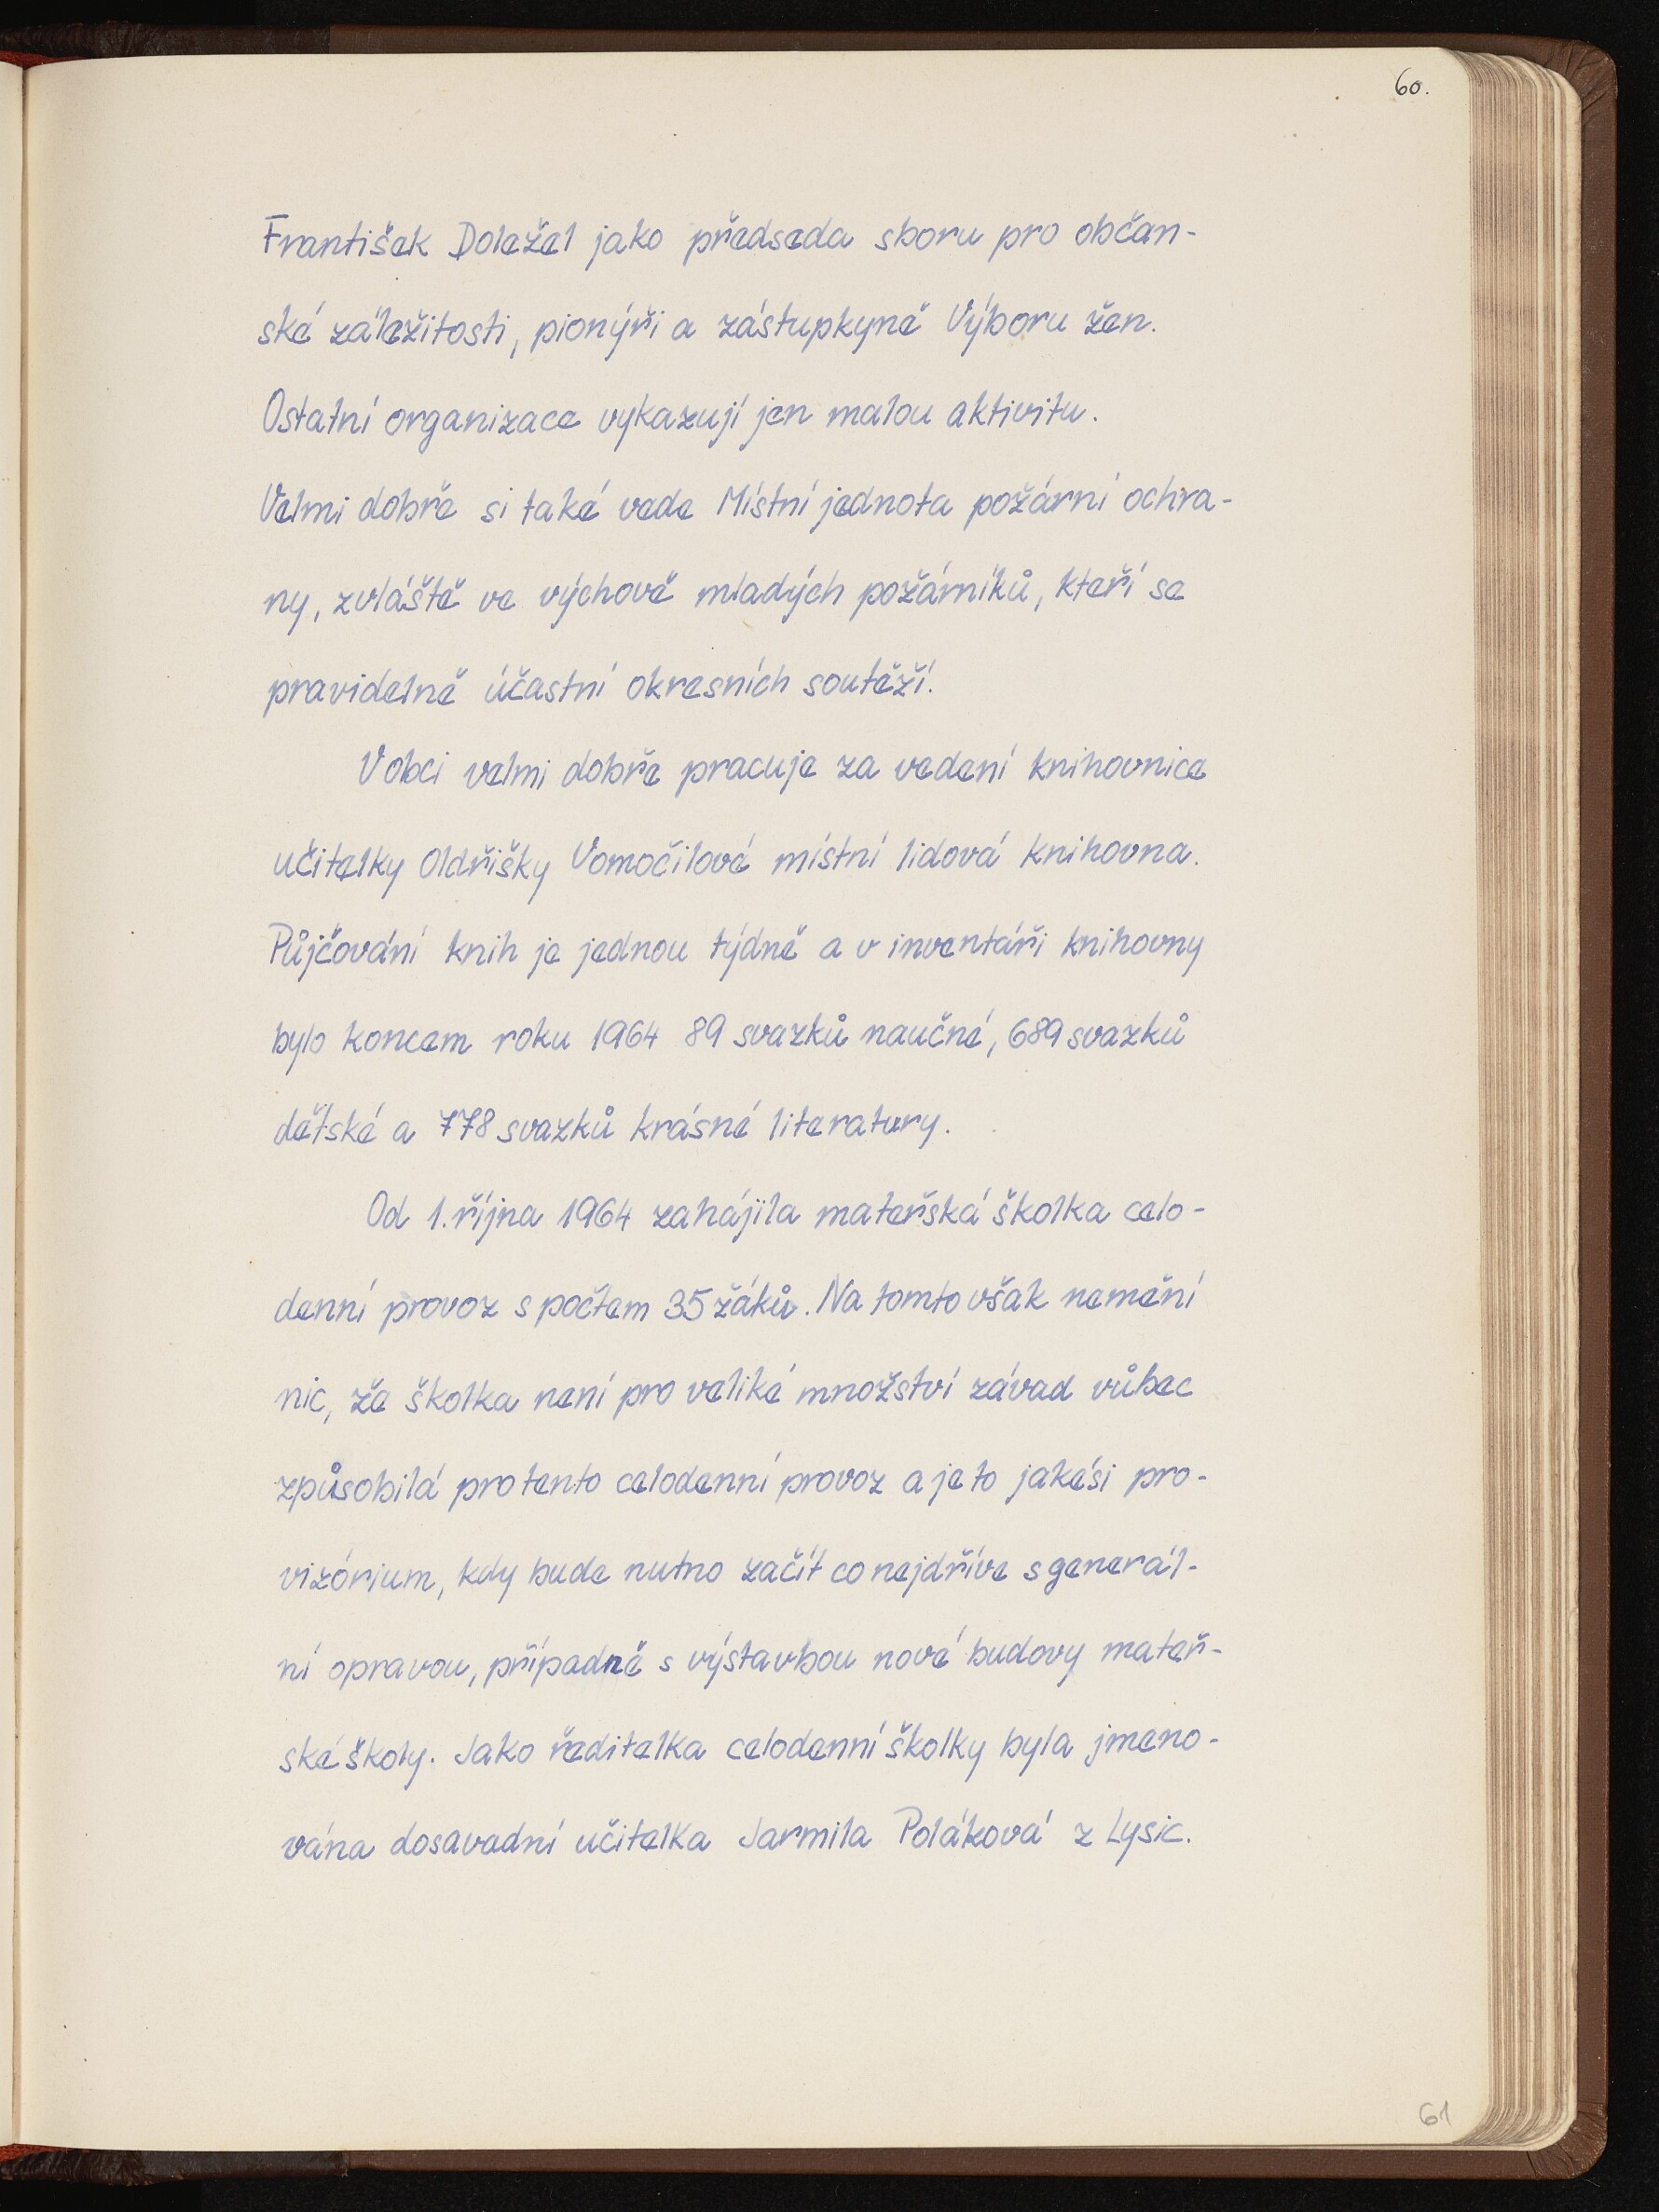 60.
František Doležel jako předseda sboru pro občan-
ské záležitosti, pionýři a zástupkyně Výboru žen.
Ostatní organizace vykazují jen malou aktivitu.
Velmi dobře si také vede Místní jednota požární ochra-
ny, zvláště ve výchově mladých požárníků, kteří se
pravidelně účastní okresních soutěží.
V obci velmi dobře pracuje za vedení knihovnice
učitelky Oldřišky Vomočilové místní lidová knihovna.
Půjčování knih je jednou týdně a v inventáři knihovny
bylo koncem roku 1964 89 svazků naučné, 689 svazků
dětské a 778 svazků krásné literatury.
Od 1. října 1964 zahájila mateřská školka celo-
denní provoz s počtem 35 žáků. Na tomto však nemění
nic, že školka není pro veliké množství závad vůbec
způsobilá pro tento celodenní provoz a je to jakési pro-
vizórium, kdy bude nutno začít co nejdříve s generál-
ní opravou, případně s výstavbou nové budovy mateř-
ské školy. Jako ředitelka celodenní školky byla jmeno-
vána dosavadní učitelka Jarmila Poláková z Lysic.
61